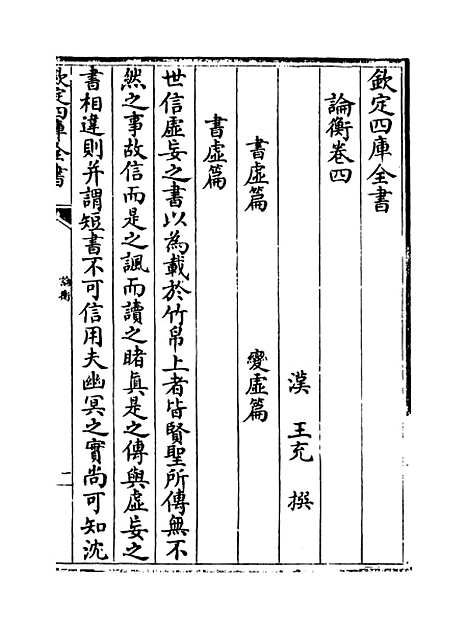 欽定四庫全書
論衡卷四
漢 王充 撰
書虛篇 變虛篇
書虛篇
世信虛妄之書以為載於竹帛上者皆賢聖所傳無不
然之事故信而是之諷而讀之睹真是之傳與虛妄之
書相違則并謂短書不可信用夫幽冥之實尚可知沈
欽定四庫全書
論衡